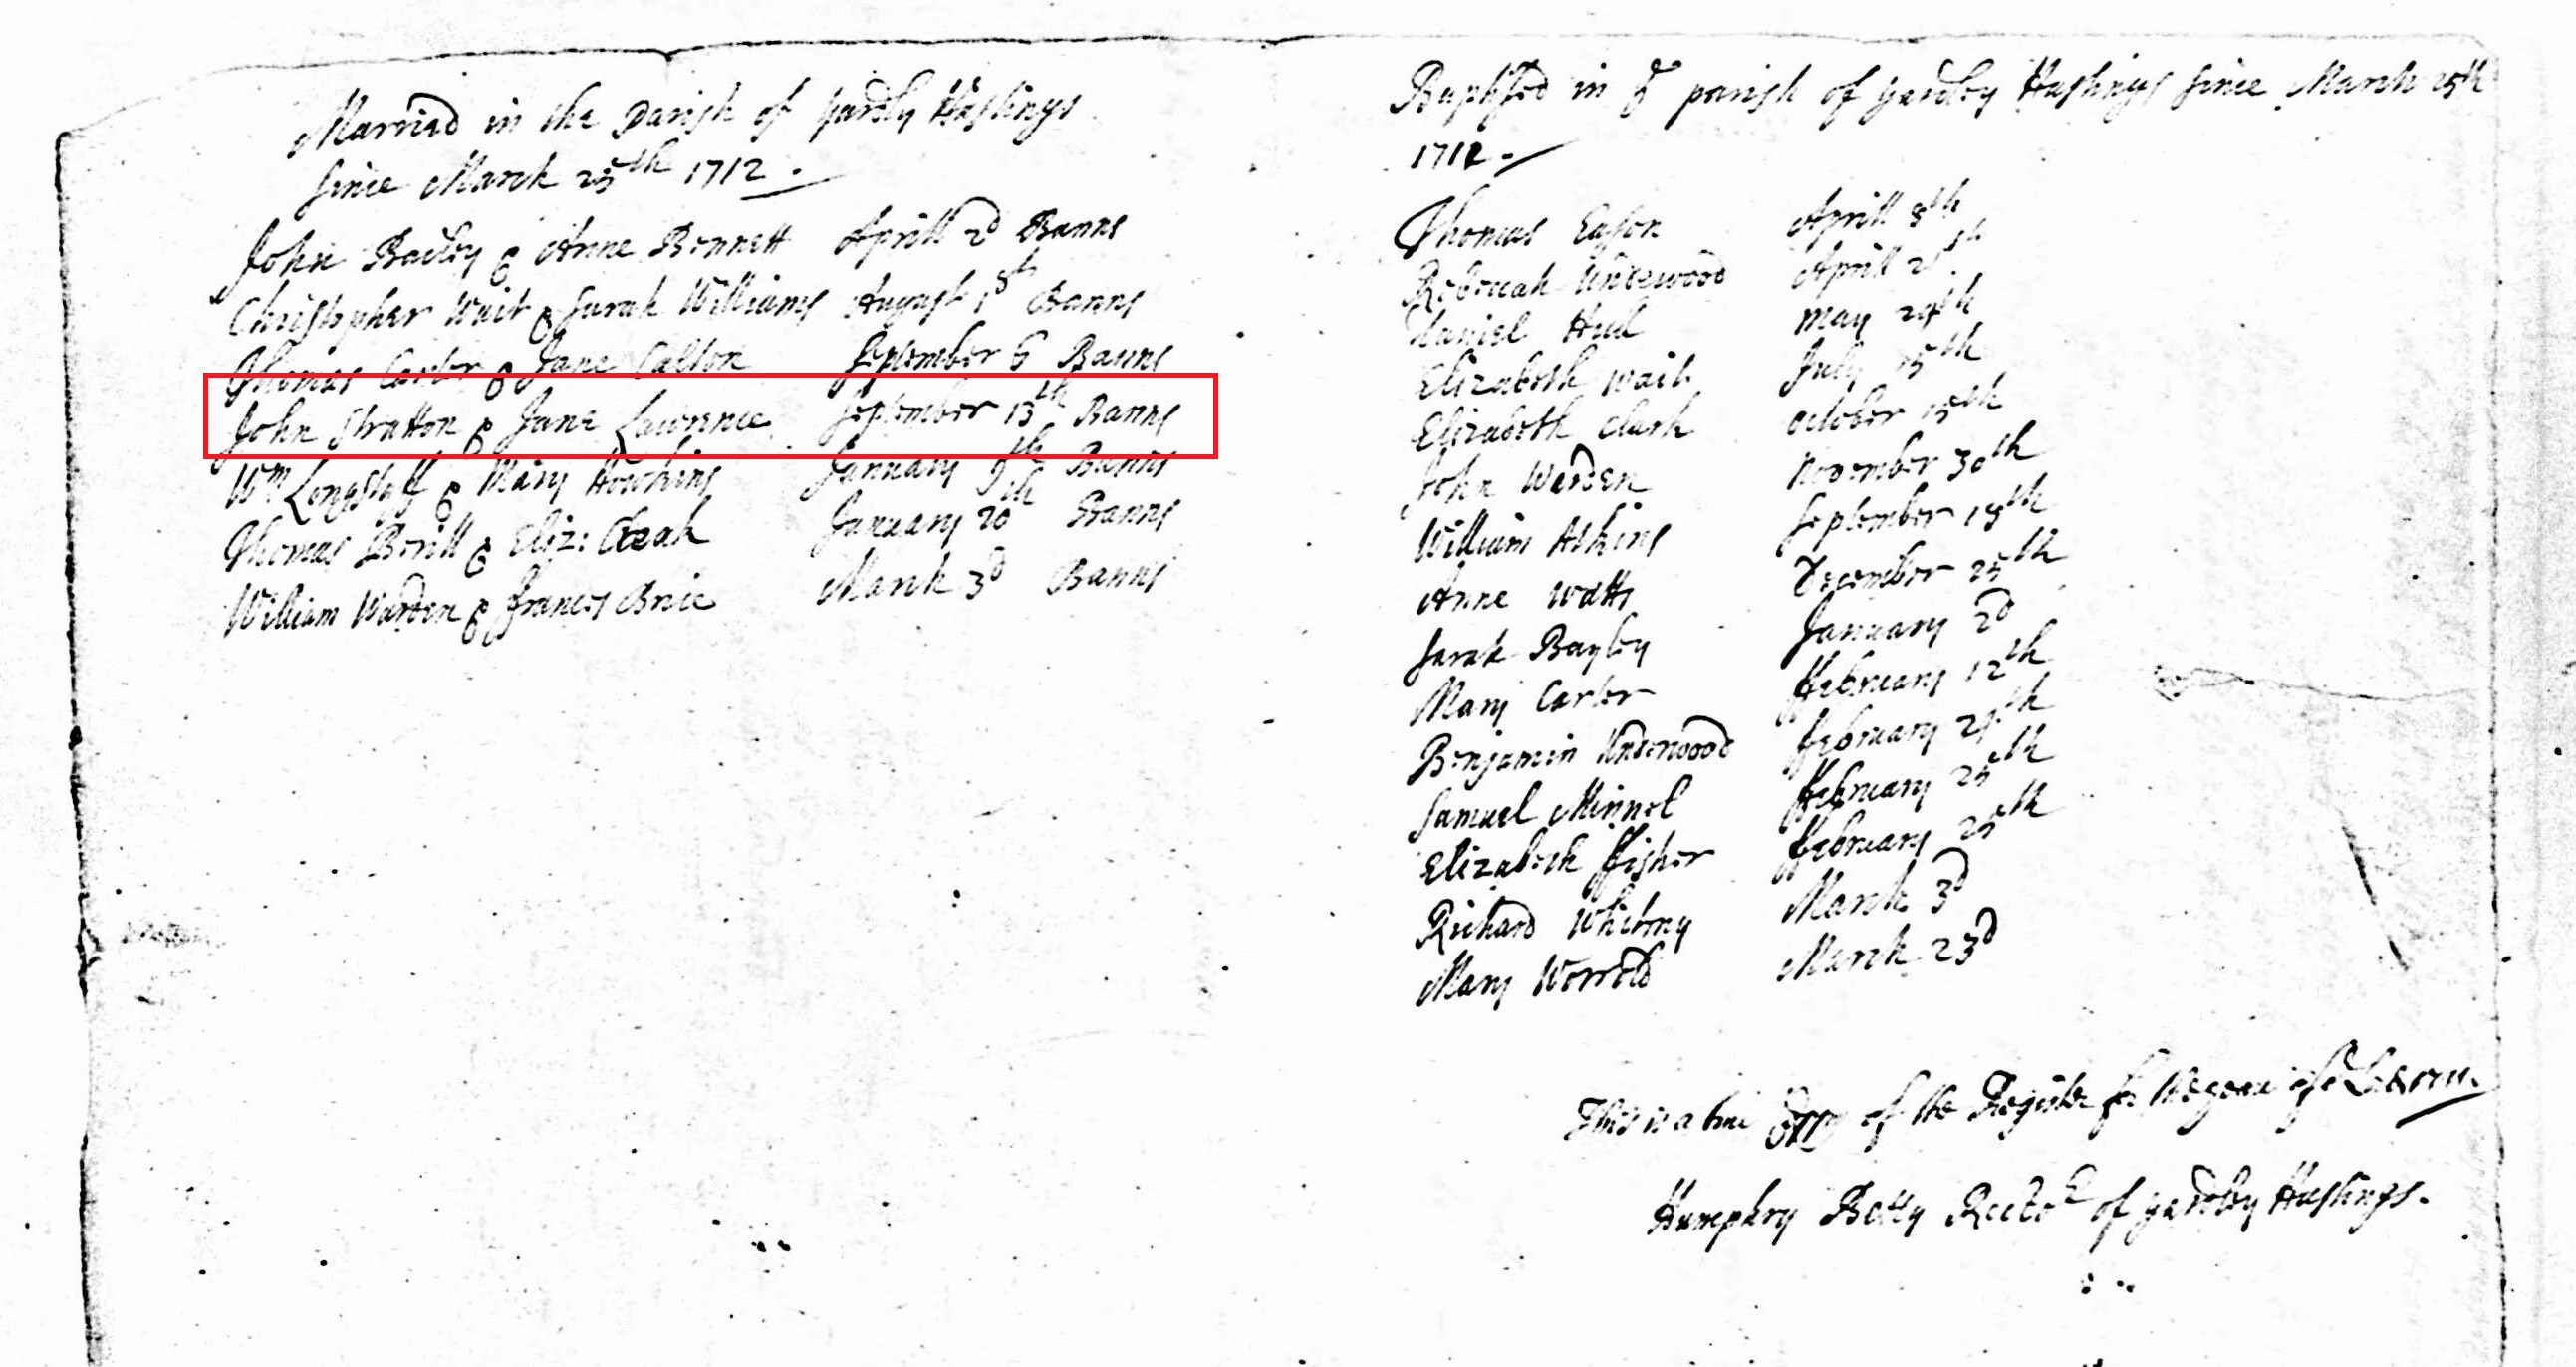 Married in the Parish of Yardly Hastings
since March 25th 1712.
John Bailey & Anne Bennett Aprill 2d Banns
Christopher Wait & Sarah Williams August Banns
Thomas Carter & Jane September 6 Banns
John Stratton & Jane Lawrence September 13th Banns
Wm Longstaff & Mary Hawkins January 9th Banns
Thomas & Eliz: January 20 Banns
William Warden & Frances Brie March 3d Banns
Baptised in ye parish of Yardley Hastings since March 25th
1712.
Thomas Eason Aprill 8th
Rebeccah Underwood Aprill
Daniel May 29th
Elizabeth Wait July 15th
Elizabeth Clark October 15th
John Warden November 30th
William Atkins September
Anne Watts December 25th
Sarah Bayley January 2d
Mary Carter ffebruary 12th
Benjamin Underwood ffebruary
Samuel Minnel ffebruary 25th
Elizabeth ffisher ffebruary 25th
Richard Whitny March 3d
Mary Worrold March 23d
This is a true Copy of the Register for
Humphry Betty Rector of Yardley Hastings.